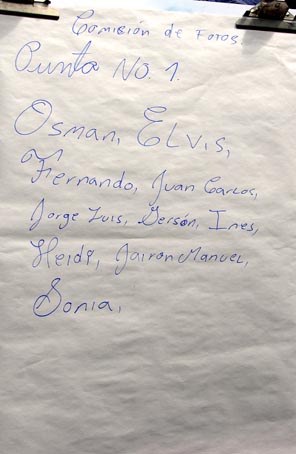 Comisión de Foros
Punto No. 1.
Osman, ELVIS,
Fernando, Juan Carlos,
Jorge Luis, Gersón, Ines,
Heidi, Jairon Manuel,
Sonia,